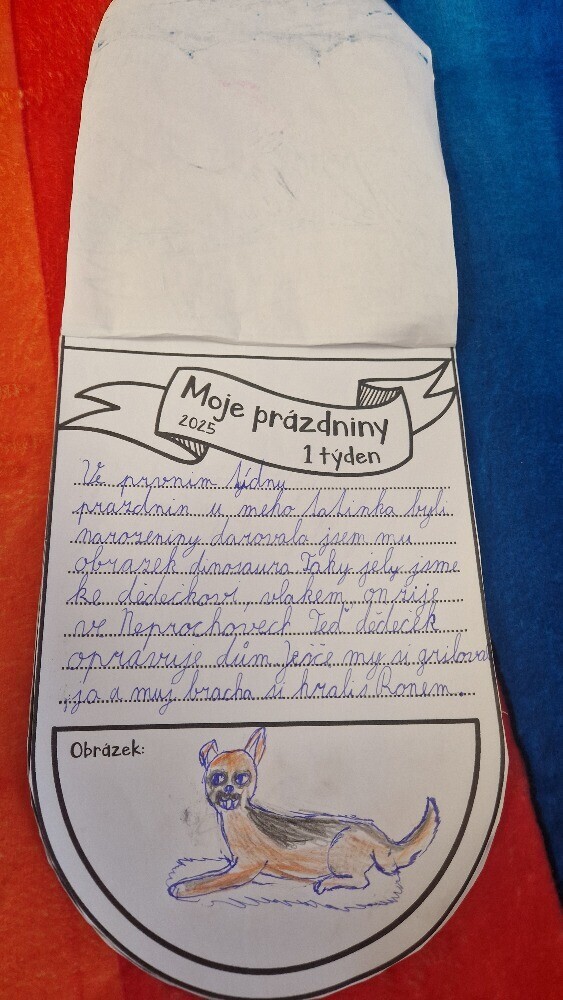 Moje prázdniny
2025
1 týden
Ve prvnim týdny
prazdnin u meho tatinka byli
narozeniny darovala jsem mu
obrazek dinosaura Taky jely jsme
ke dědečkovi, vlakem, on žije
ve Neprochovech Teď dědeček
opravuje dům Ješče my si grilova
ja a muj bracha si hrali s Ronem.
Obrázek: